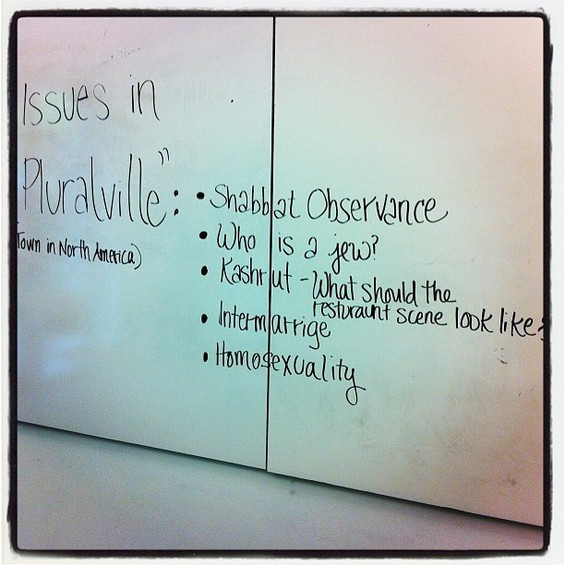 Issues in
Pluralville":
(Town in North America)
• Shabbat Observance
• Who is a jew?
• Kashrut - What should the
resturaunt scene look like?
• Intermarrige
• Homosexuality